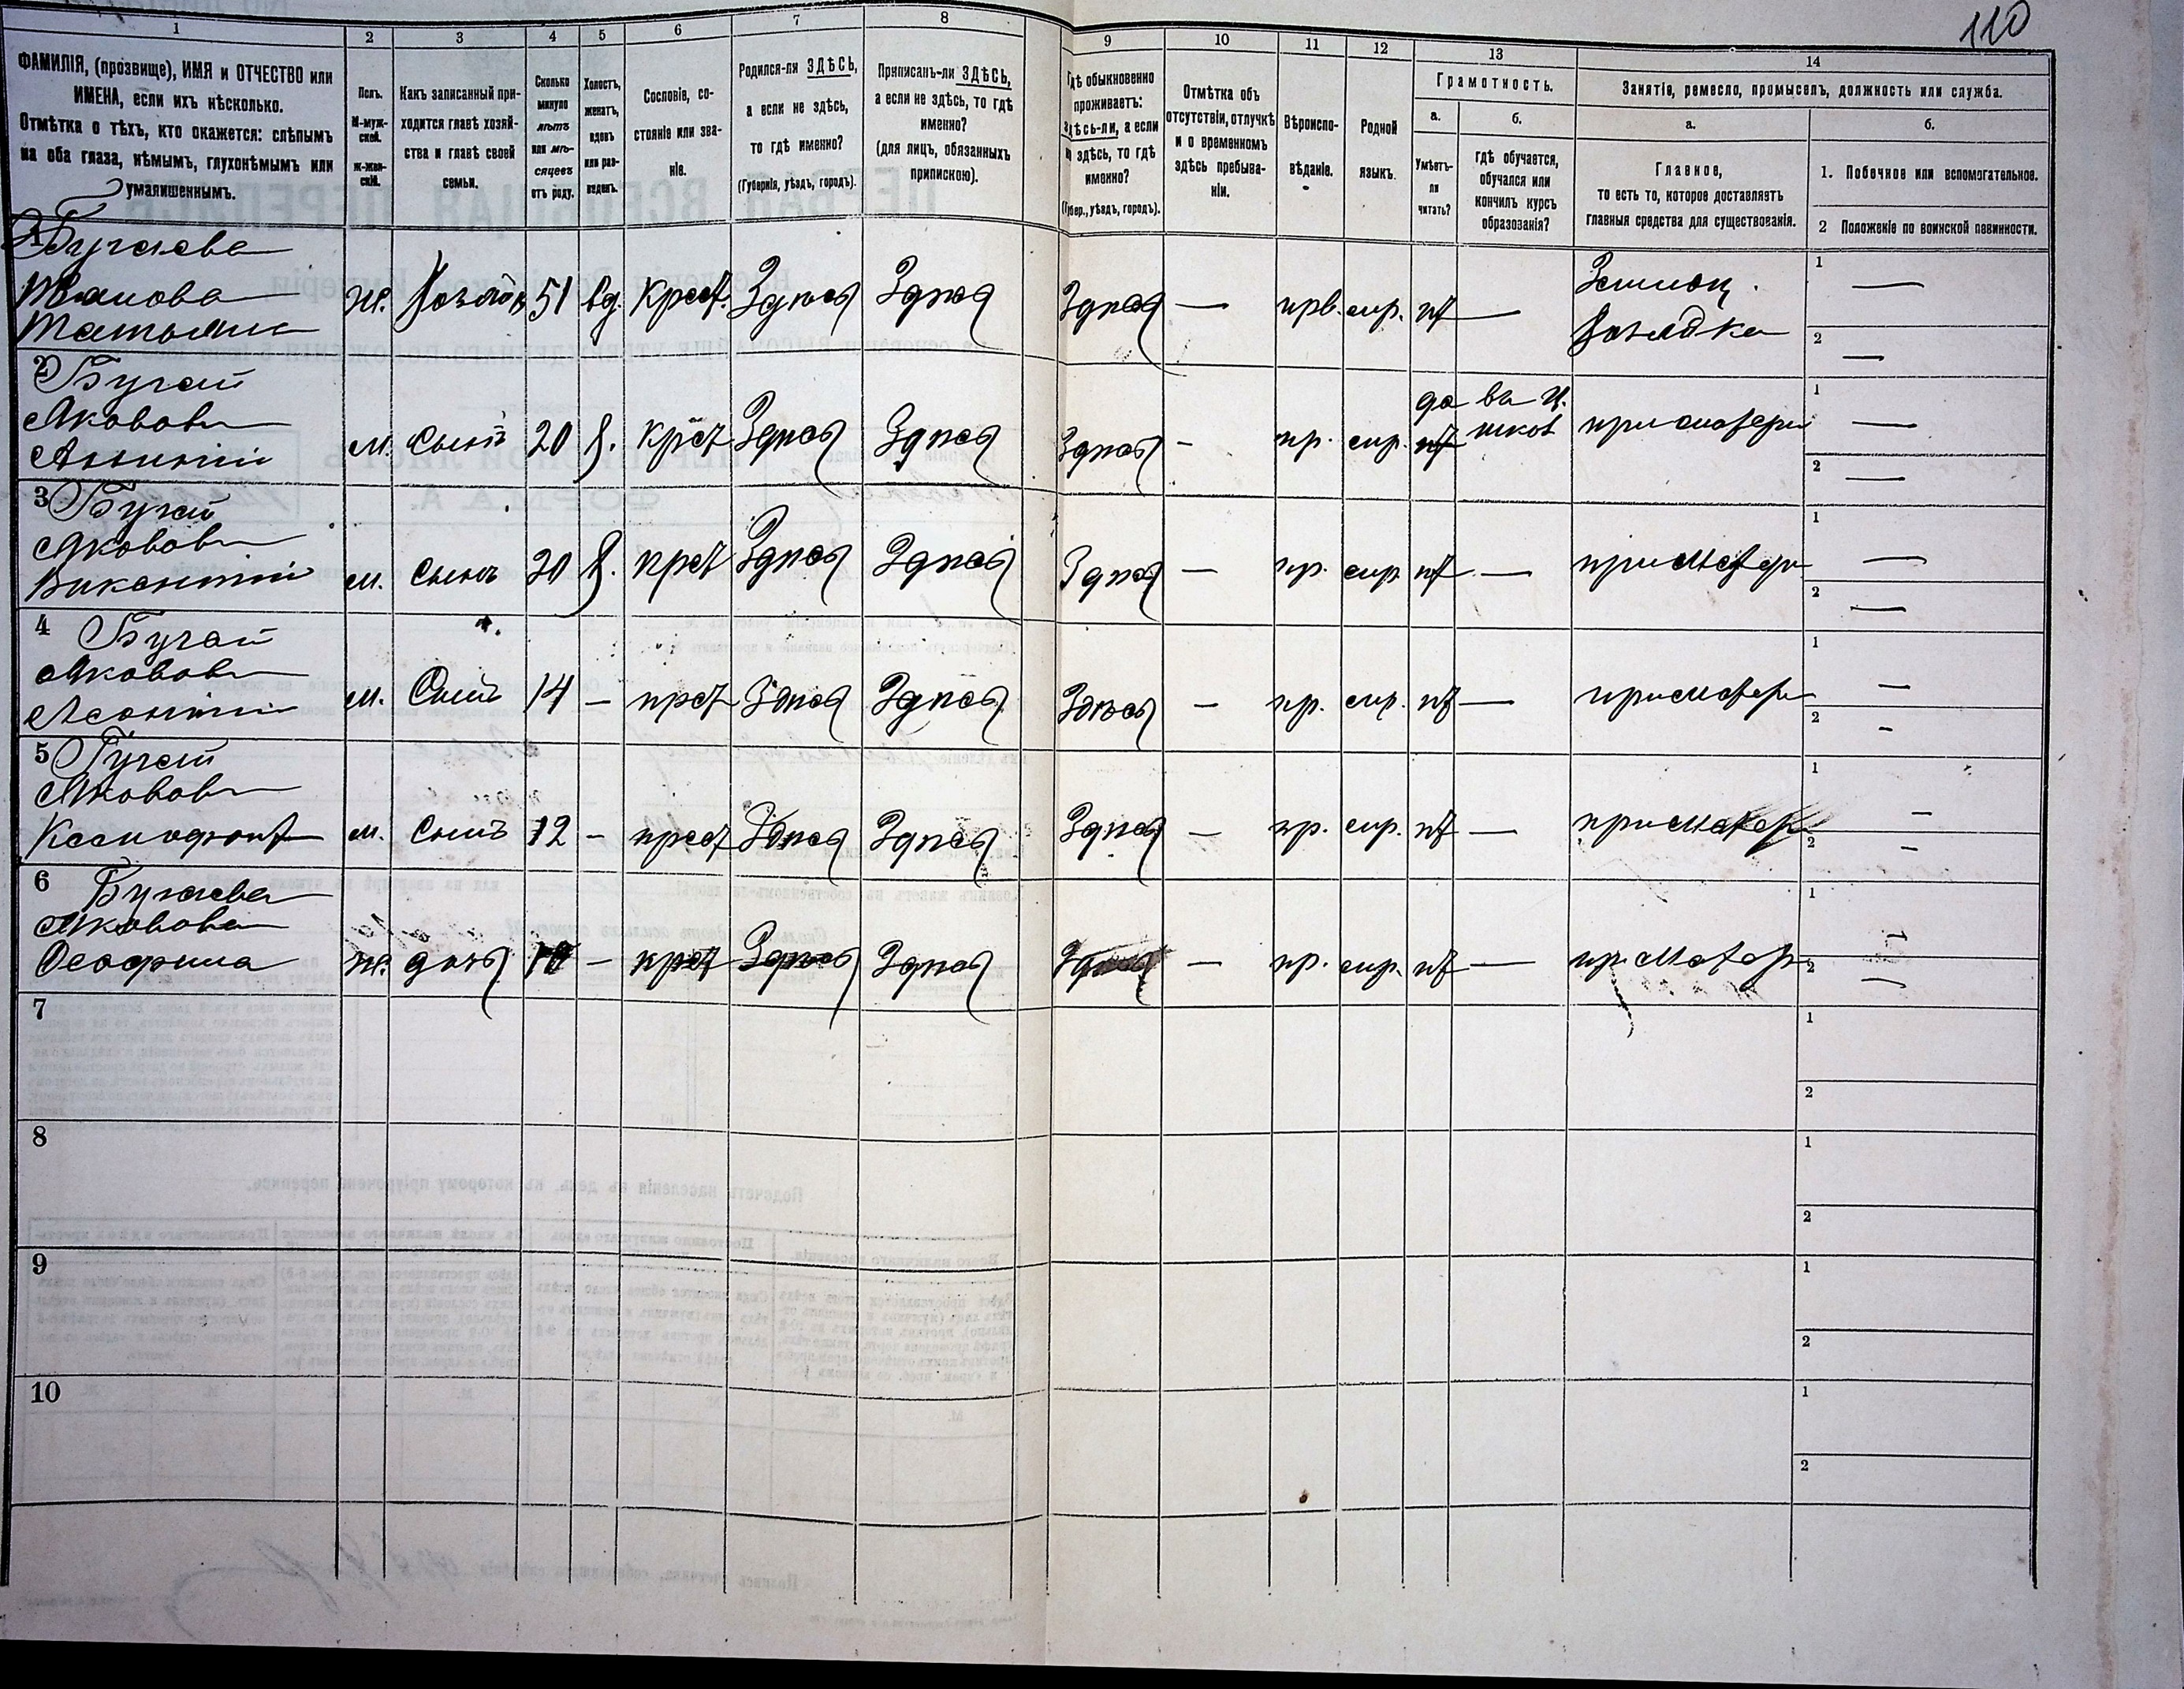 110
1
2
3
4
5
6
7
8
9
10
11
12
13
14
ФАМИЛІЯ, (прозвище), ИМЯ и ОТЧЕСТВО или
ИМЕНА, если ихъ нѣсколько.
Отмѣтка о тѣхъ, кто окажется: слѣпымъ
на оба глаза, нѣмымъ, глухонѣмымъ или
умалишеннымъ.
Полъ.
М-муж-
ской.
ж-жен-
скій.
Какъ записанный при-
ходится главѣ хозяй-
ства и главѣ своей
семьи.
Сколько
минуло
лѣтъ
или мѣ-
сяцевъ
отъ роду.
Холостъ,
женатъ,
вдовъ
или раз-
веденъ.
Сословіе, со-
стояніе или зва-
ніе.
Родился-ли ЗДѢСЬ,
а если не здѣсь,
то гдѣ именно?
(Губернія, уѣздъ, городъ).
Приписанъ-ли ЗДѢСЬ,
а если не здѣсь, то гдѣ
именно?
(для лицъ, обязанныхъ
припискою).
Гдѣ обыкновенно
проживаетъ:
здѣсь-ли, а если
не здѣсь, то гдѣ
именно?
(Губер., уѣздъ, городъ).
Отмѣтка объ
отсутствіи, отлучкѣ
и о временномъ
здѣсь пребыва-
ніи.
Вѣроиспо-
вѣданіе.
Родной
языкъ.
Грамотность.
а.
Умѣетъ-
ли
читать?
б.
гдѣ обучается,
обучался или
кончилъ курсъ
образованія?
Занятіе, ремесло, промыселъ, должность или служба.
а.
Главное,
то есть то, которое доставляетъ
главныя средства для существованія.
б.
1. Побочное или вспомогательное.
2 Положеніе по воинской повинности.
1 Бугаева
Иванова
Татьяна
ж. Хозяйка 51 вд. Крест. Здѣсь Здѣсь Здѣсь — прв. мр. нѣт —
Землед.
Хозяйка
1 —
2 —
2 Бугай
Яковов
Антоній
м. Сынъ 20 х. крест Здѣсь Здѣсь Здѣсь - пр. мр. да нѣт
въ ц.
школ
при матери
1 —
2 —
3 Бугай
Яковов
Викентій
м. Сынъ 20 х. крест Здѣсь Здѣсь Здѣсь — пр. мр. нѣт — при матери
1 —
2 —
4 Бугай
Яковов
Леонтій
м. Сынъ 14 — крест Здѣсь Здѣсь Здѣсь — пр. мр. нѣт — при матери
1 —
2 -
5 Бугай
Яковов
Ксенофонт м. Сынъ 12 - крест Здѣсь Здѣсь Здѣсь — пр. мр. нѣт — при матери
1 —
2 -
6 Бугаева
Яковова
Феофила ж. дочь 10 — крест Здѣсь Здѣсь Здѣсь — пр. мр. нѣт — пр. матери
1 —
2 —
7
1
2
8
1
2
9
1
2
10
1
2